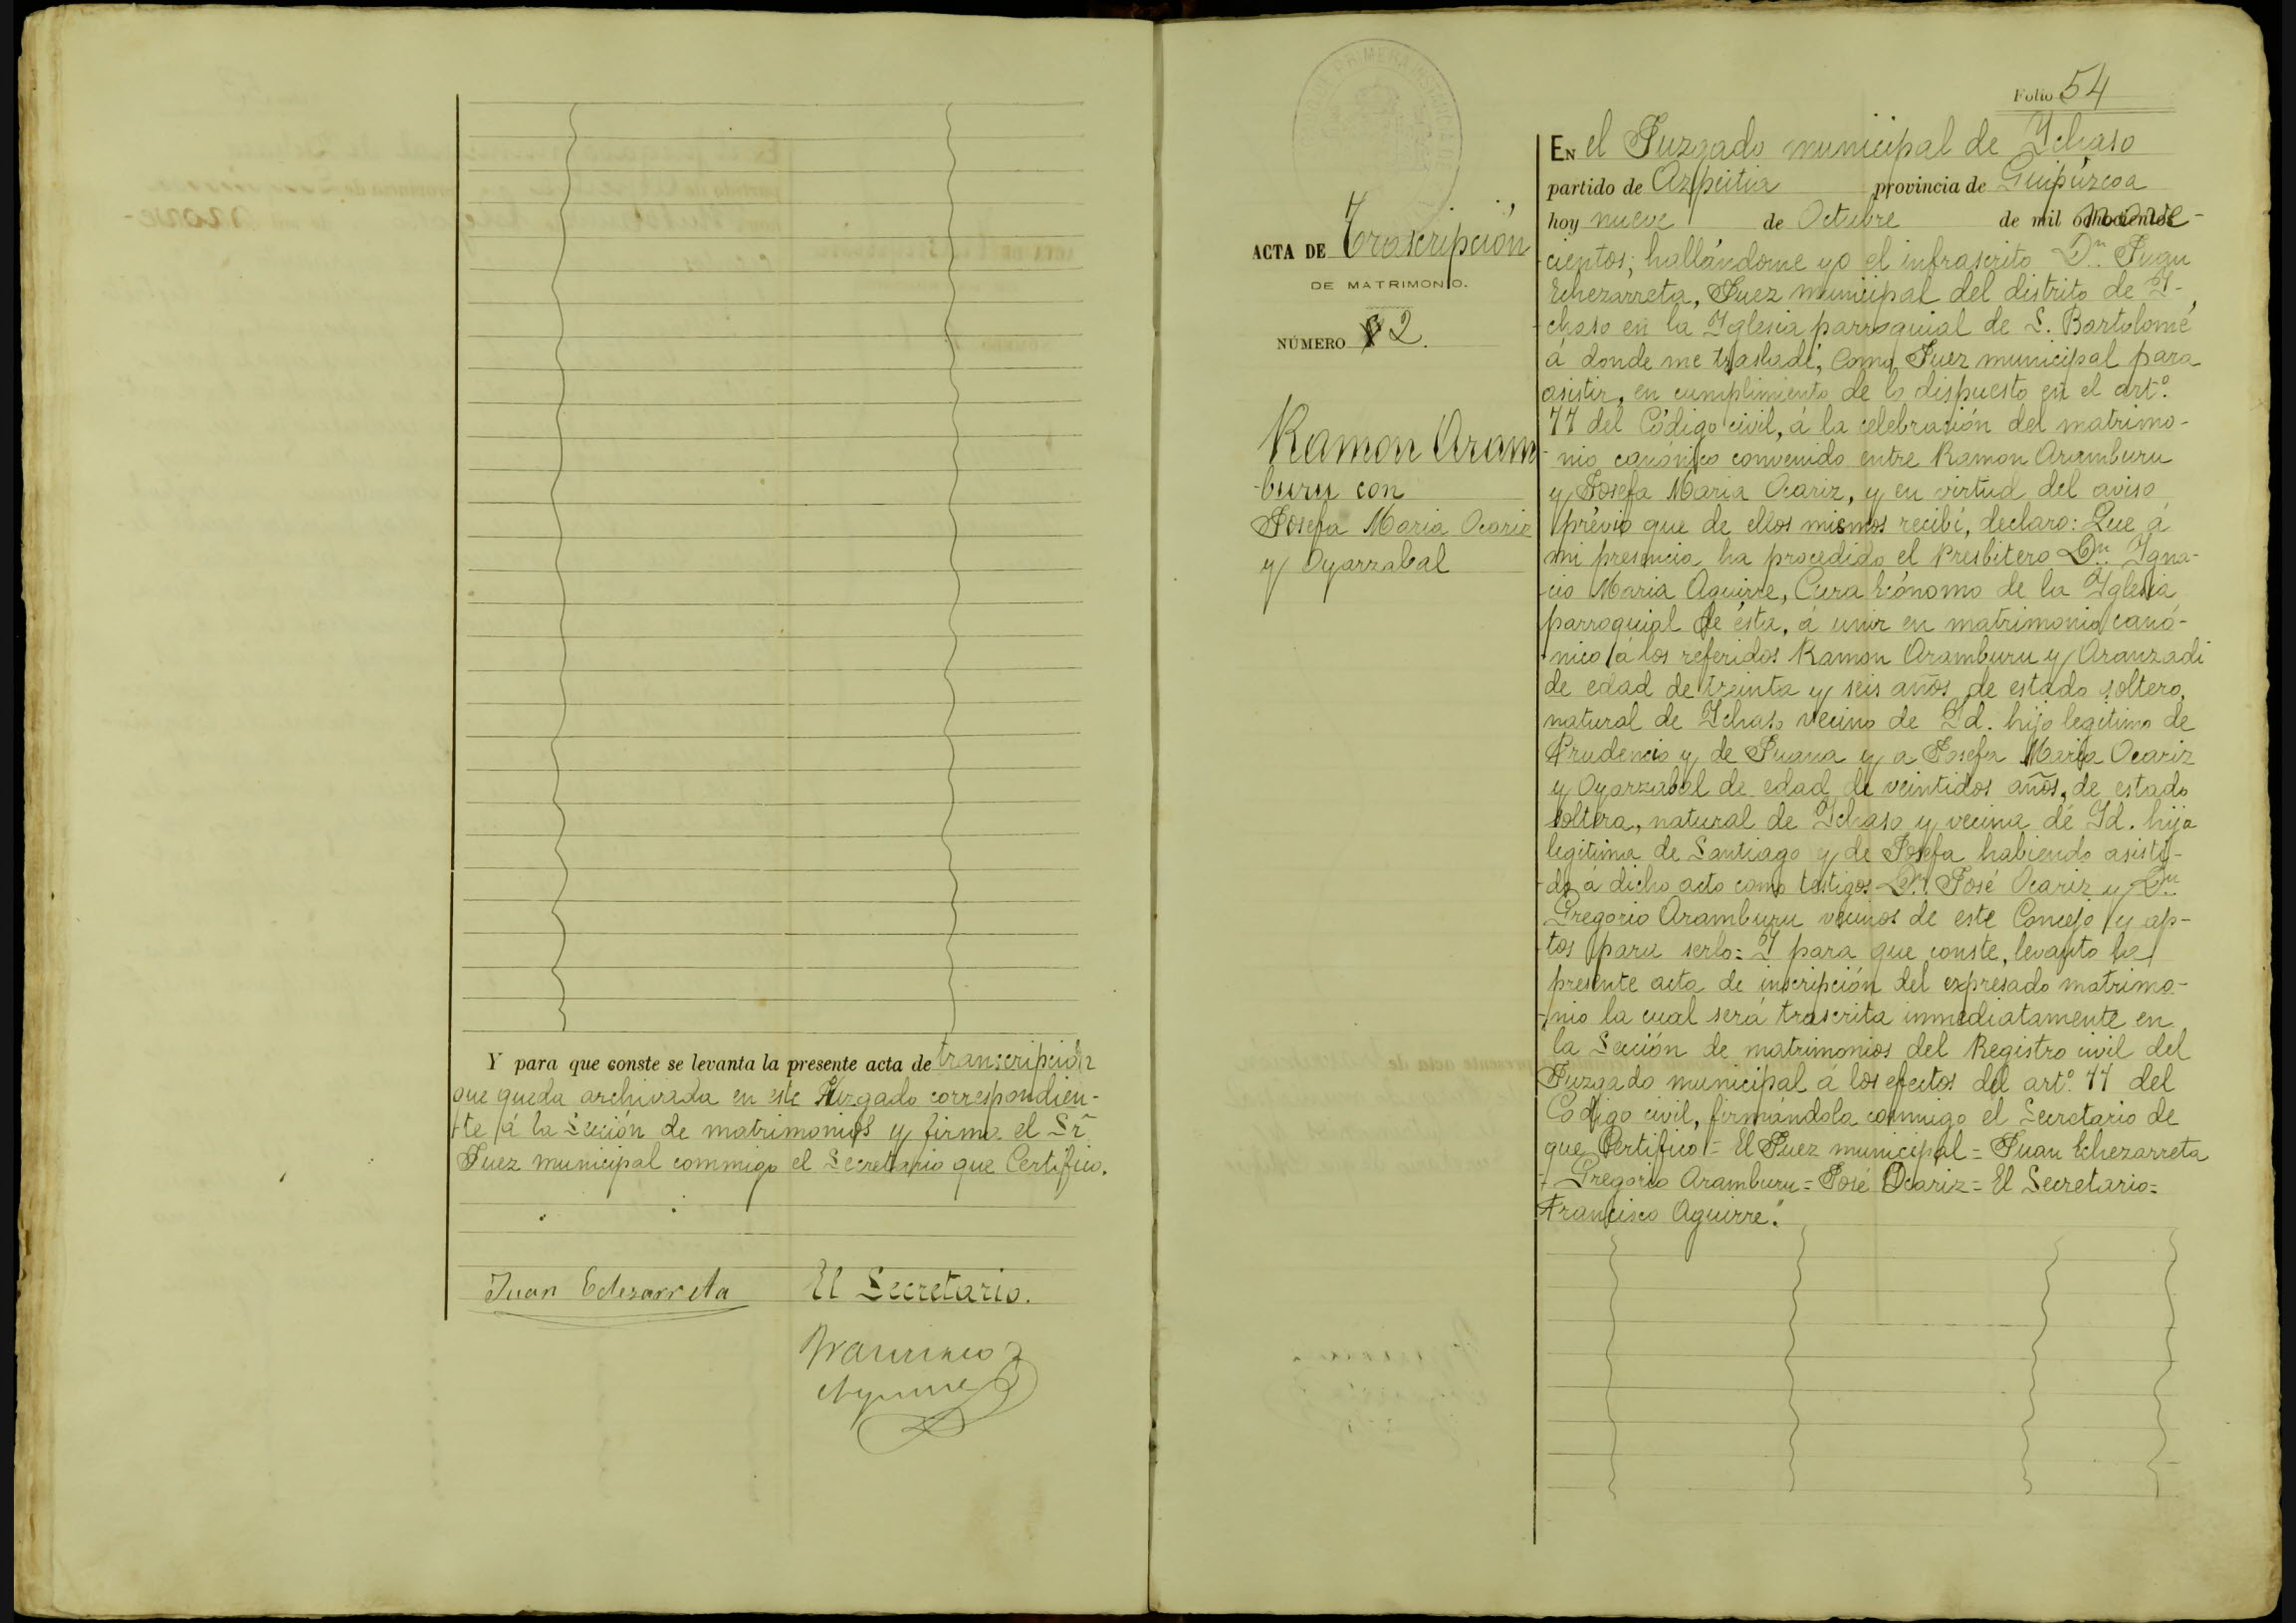 Y para que conste se levanta la presente acta de transcripción
que queda archivada en este Juzgado correspondien-
-te á la Sección de matrimonios y firma el Sr
Juez municipal commigo el Secretario que Certifico.
Juan Echezarreta El Secretario.
Francisco
Aguirre
Folio 54
ACTA DE Trascripción
DE MATRIMONIO.
NÚMERO 2.
Ramon Aram
-buru con
Josefa Maria Ocariz
y Oyarzabal
EN el Juzgado municipal de Ychaso
partido de Azpeitia provincia de Guipúzcoa
hoy nueve de Octubre de mil nove-
-cientos; hallándome yo el infrascrito Dn. Juan
Echezarreta, Juez municipal del distrito de Y-
-chaso en la Yglesia parroquial de S. Bartolomé
á donde me trasladé, como Juez municipal para
asistir, en cumplimiento de lo dispuesto en el artº.
77 del Código civil, á la celebración del matrimo-
-nio canónico convenido entre Ramon Aramburu
y Josefa Maria Ocariz, y en virtud del aviso
prévio que de ellos mismos recibí, declaro: Que á
mi presencia ha procedido el Presbitero Dn. Ygna-
-cio Maria Aguirre, Cura Ecónomo de la Yglesia
parroquial de ésta, á unir en matrimonio canó-
-nico á los referidos Ramon Aramburu y Aranzadi
de edad de treinta y seis años de estado soltero,
natural de Ychaso vecino de Yd. hijo legitimo de
Prudencio y de Juana y a Josefa Maria Ocariz
y Oyarzabal de edad de veintidos años, de estado
soltera, natural de Ychaso y vecina de Yd. hija
legitima de Santiago y de Josefa habiendo asisti-
-do á dicho acto como testigos Dn. José Ocariz y Dn.
Gregorio Aramburu vecinos de este Concejo y ap-
-tos para serlo= Y para que conste, levanto la
presente acta de inscripción del expresado matrimo-
-nio la cual será trascrita inmediatamente en
la Sección de matrimonios del Registro civil del
Juzgado municipal á los efectos del artº. 77 del
Código civil, firmándola conmigo el Secretario de
que Certifico = El Juez municipal = Juan Echezarreta
= Gregorio Aramburu = José Ocariz = El Secretario=
Francisco Aguirre."